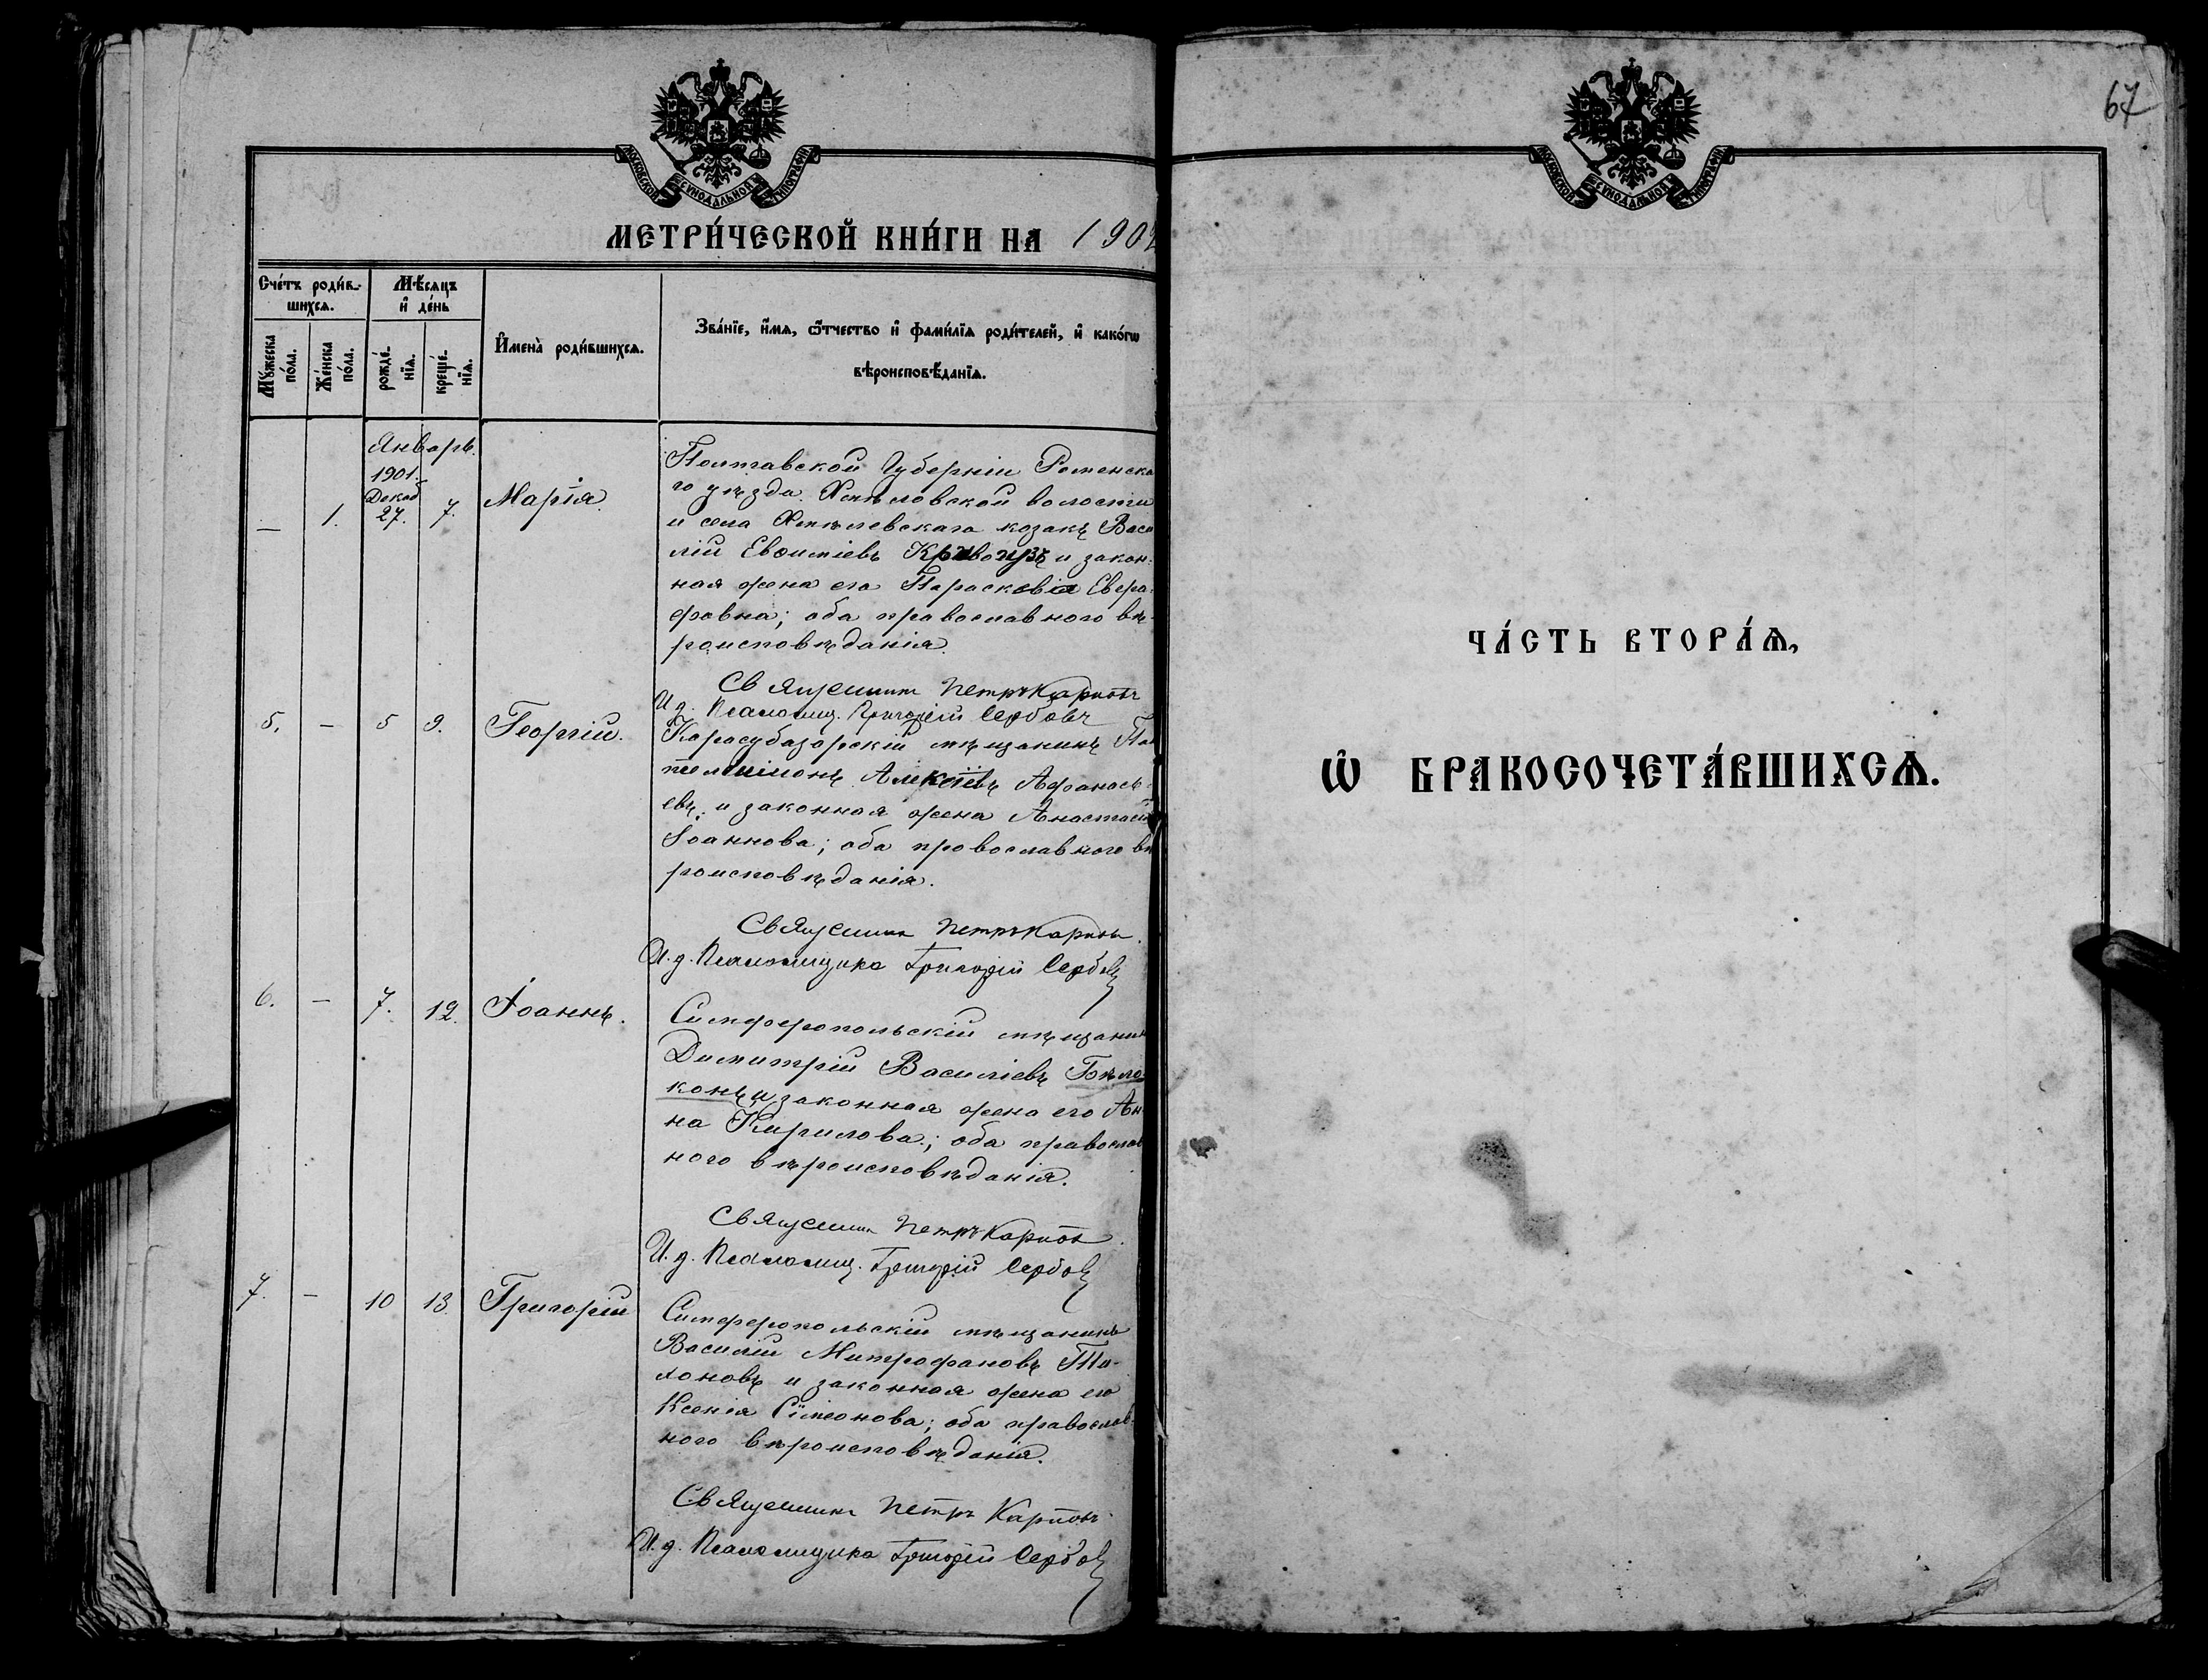 МОСКОВСКОЙ СѴНОДАЛЬНОЙ ТИПОГРАФІИ
МЕТРИ́ЧЕСКОЙ КНИ́ГИ НА 1902
Сче́тъ роди́в-
шихсѧ.
Мѣ́сѧцъ
и҆ де́нь
Мꙋ́жеска
по́ла.
Же́нска
по́ла.
рожде́-
нїѧ.
креще́-
нїѧ.
И҆мена̀ роди́вшихсѧ.
Зва́нїе, и҆́мѧ, ѻ҆́тчество и҆ фами́лїѧ роди́телей, и҆ како́гѡ
вѣроисповѣ́данїѧ.
Январь.
1901.
Декаб
— 1. 27. 7. Марія.
Полтавской Губерніи Роменска
го уѣзда Хмѣловской волости
и села Хмѣлевскаго козакъ Васи
лій Евфиміевъ Кривогузъ и закон:
ная жена его Параскевія Евгра:
фовна; оба православного вѣ
роисповѣданія.
Священникъ Петръ Карповъ
И. д. Псаломщ. Григорій Сербовъ
5. — 5 9. Георгій.
Карасубазарскій мѣщанинъ Пан
телеимонъ Алексіевъ Афанась-
евъ; и законная жена Анастасія
Іоаннова; оба провославного вѣ
роисповѣданія.
Священникъ Петръ Карповъ.
И. д. Псаломщика Григорій Сербовъ
6. — 7. 12. Іоаннъ.
Симферопольскій мѣщанин
Димитрій Василіевъ Бѣло
конь и законная жена его Ан
на Кирилова; оба православ
ного вѣроисповѣданія.
Священникъ Петръ Карповъ.
И. д. Псаломщ. Григорій Сербовъ
7. — 10 13. Григорій
Симферопольскій мѣщанинъ
Василій Митрофановъ Ти-
хоновъ и законная жена его
Ксенія Сімеонова; оба православ-
ного вѣроисповѣданія.
Священникъ Петръ Карповъ
И. д. Псаломщика Григорій Сербовъ
67
МОСКОВСКОЙ СѴНОДАЛЬНОЙ ТИПОГРАФІИ
ЧА́СТЬ ВТОРА́Ѧ,
Ѽ БРАКОСОЧЕТА́ВШИХСѦ.